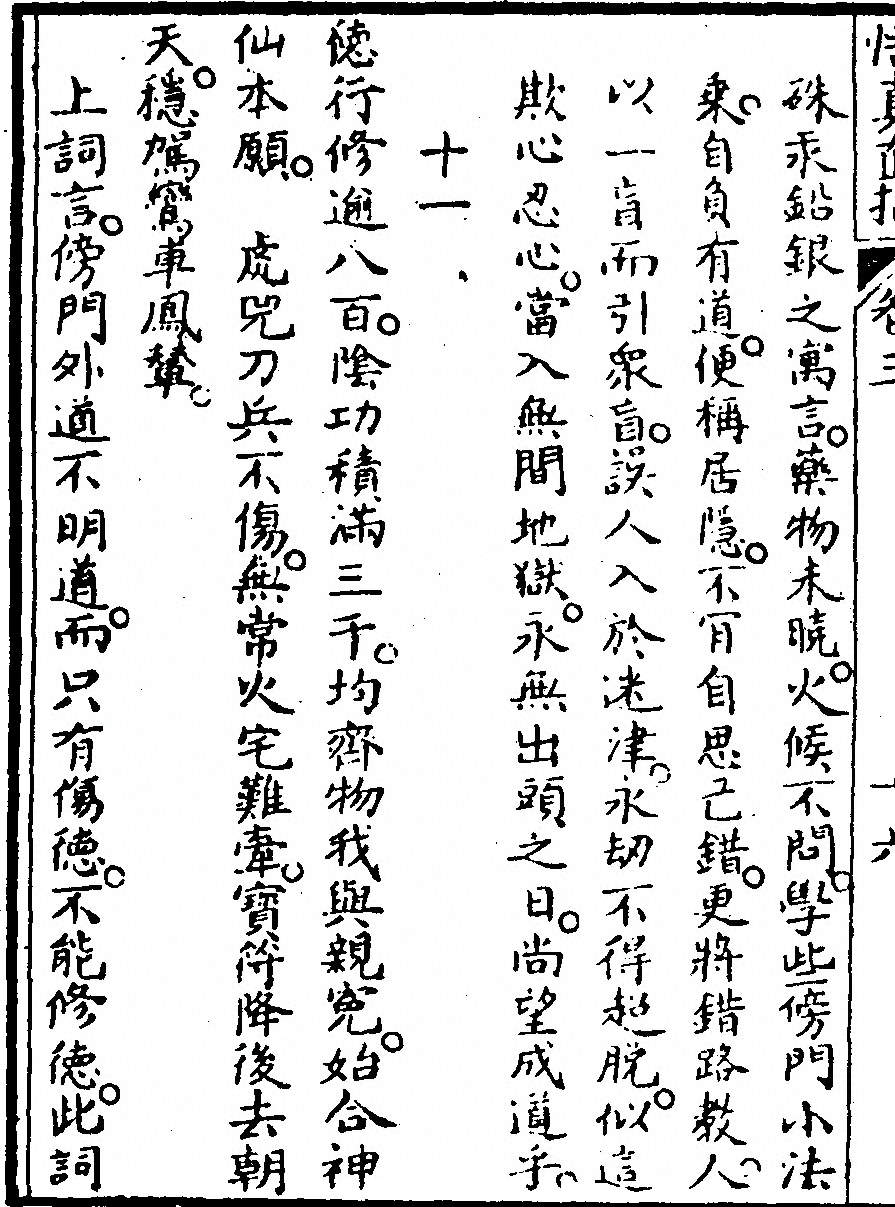 悟真直指 卷三 十六
硃汞鉛銀之寓言。藥物未曉。火候不問。學些傍門小法
乘。自負有道。便稱居隱。不肎自思己錯。更將錯路敎人。
以一盲而引衆盲。誤人入於迷津。永劫不得超脫。似這
欺心忍心。當入無間地獄。永無出頭之日。尚望成道乎。
十一、
德行修逾八百。陰功積滿三千。均齊物我與親冤。始合神
仙本願。 虎兕刀兵不傷。無常火宅難牽。寶符降後去朝
天。穩駕鸞車鳳輦。
上詞言。傍門外道不明道。而只有傷德。不能修德。此詞